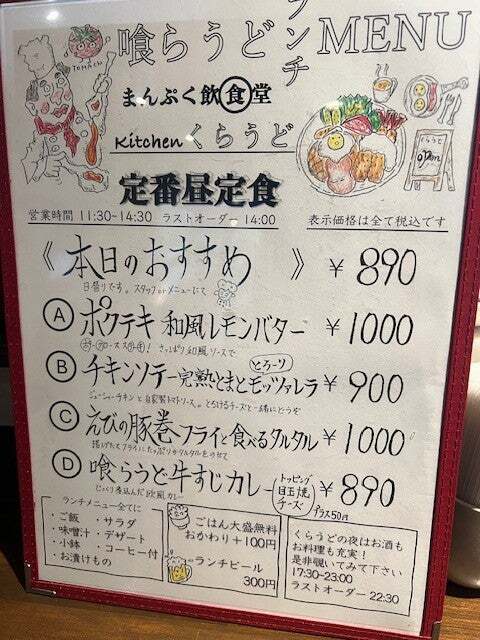 喰らうど ランチ MENU
TOMACH
まんぷく飲食堂
Kitchen くらうど
くらうど
open
定番昼定食
営業時間 11:30~14:30 ラストオーダー 14:00
表示価格は全て税込です
《本日のおすすめ》 ¥890
日替りです。スタッフorメニューにて
Ⓐ ポクテキ 和風レモンバター ¥1000
さっぱり和風ソースで
Ⓑ チキンソテー完熟とまとモッツァレラ ¥900
とろーり
ジューシーチキンと自家製トマトソース。とろけるチーズと一緒にどうぞ
Ⓒ えびの豚巻フライと食べるタルタル ¥1000
揚げたてフライにたっぷりタルタルをのせて
Ⓓ 喰らうど牛すじカレー ¥890
トッピング
目玉焼
チーズ
プラス50円
じっくり煮込んだ欧風カレー
ランチメニュー全てに
・ご飯 ・サラダ
・味噌汁 ・デザート
・小鉢 ・コーヒー付
・お漬けもの
ごはん大盛無料
おかわり+100円
ランチビール
300円
くらうどの夜はお酒も
お料理も充実!
是非覗いてみて下さい
17:30-23:00
ラストオーダー 22:30